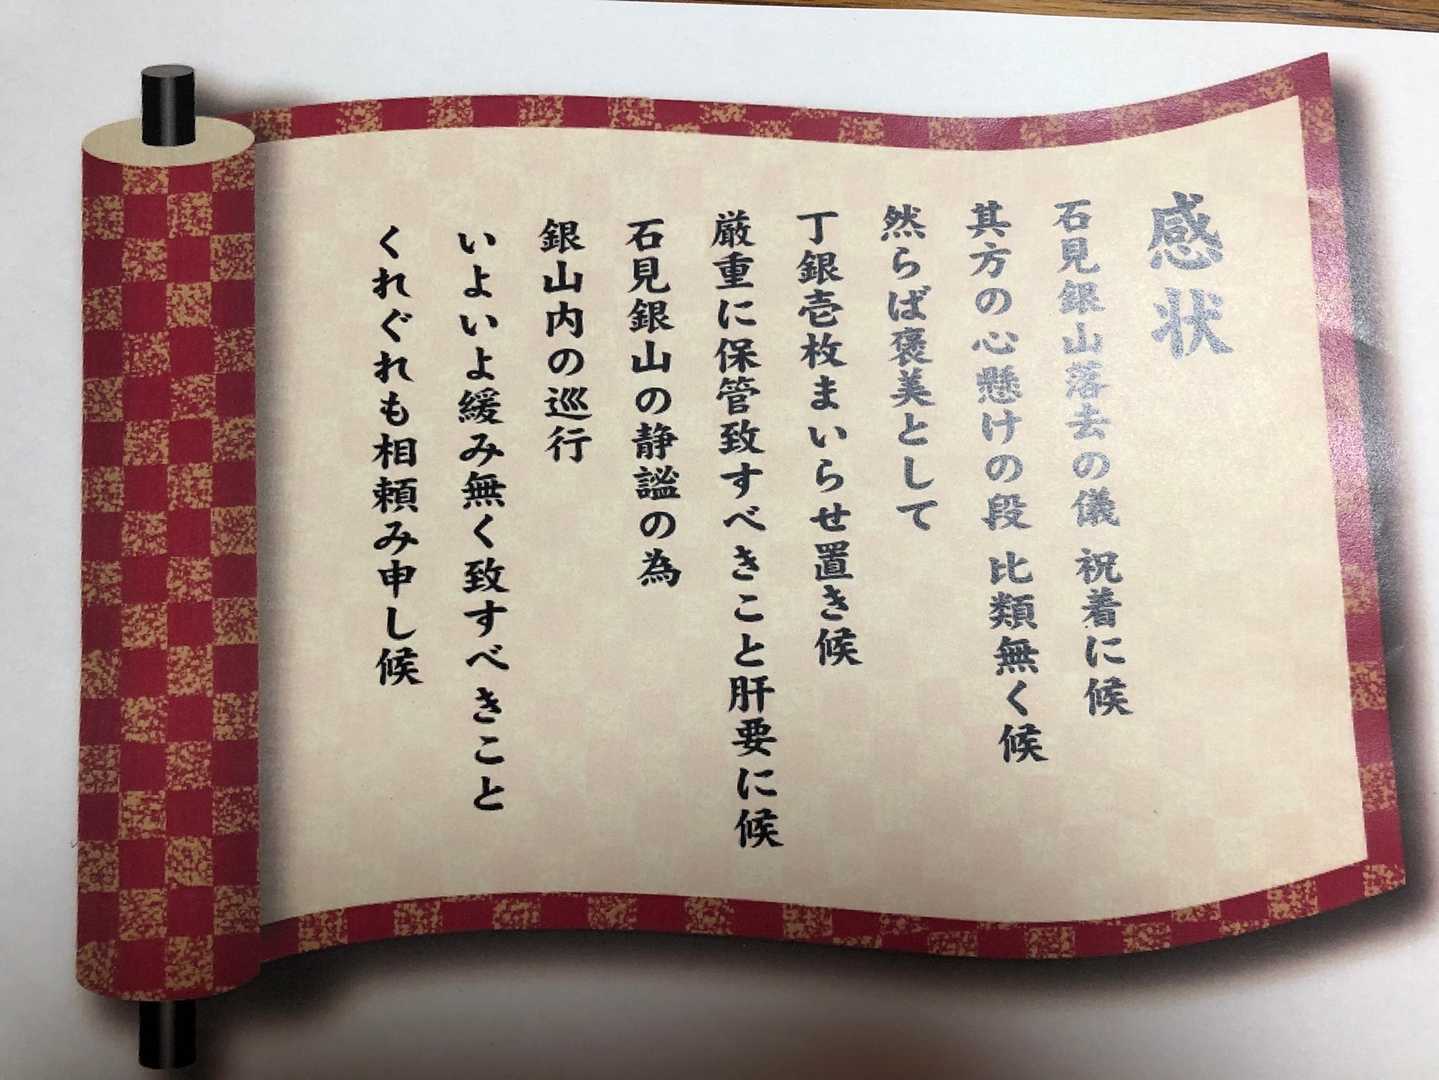 感状
石見銀山落去の儀 祝着に候
其方の心懸けの段 比類無く候
然らば褒美として
丁銀壱枚まいらせ置き候
厳重に保管致すべきこと肝要に候
石見銀山の静謐の為
銀山内の巡行
いよいよ緩み無く致すべきこと
くれぐれも相頼み申し候